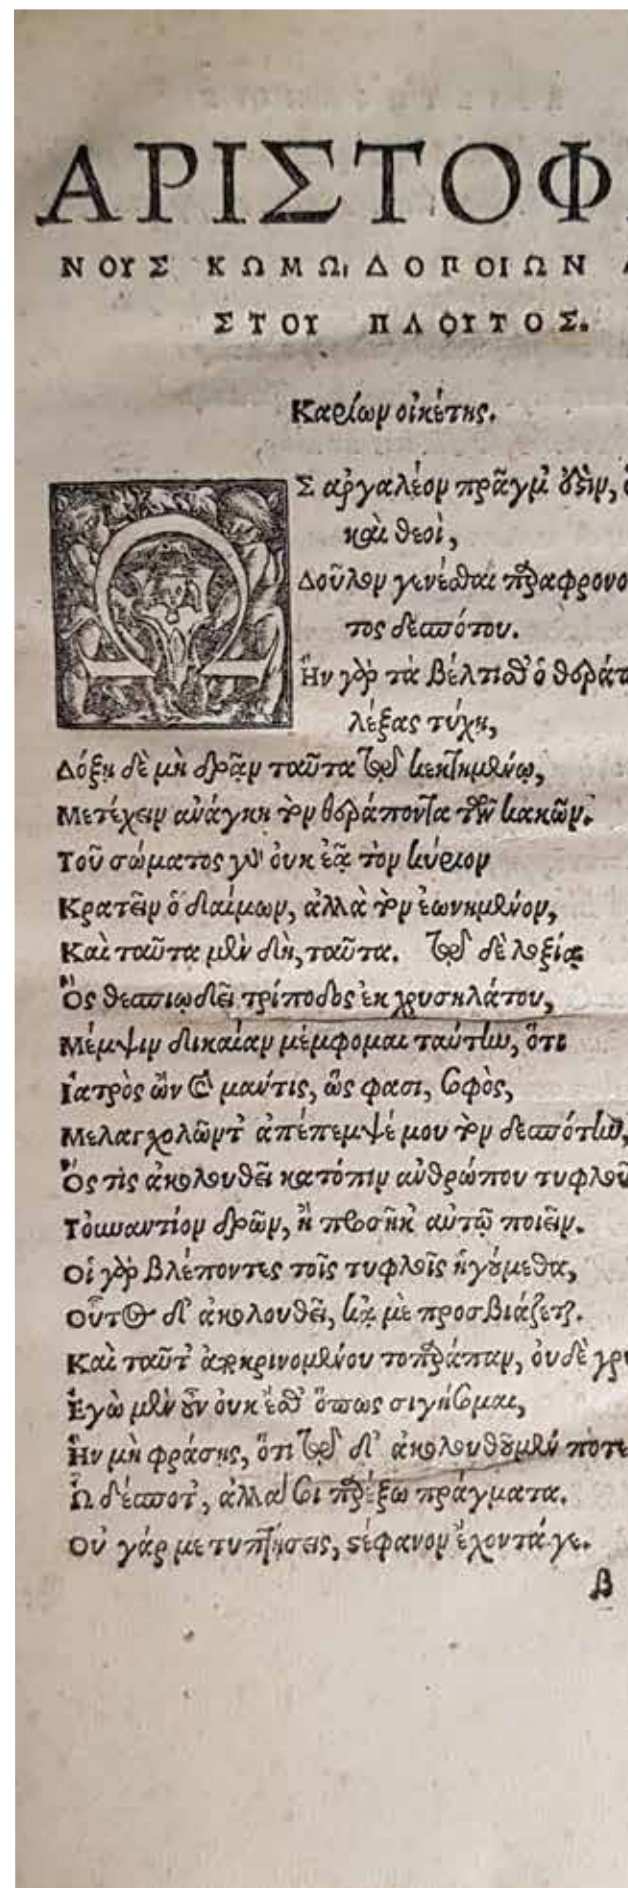 ΑΡΙΣΤΟΦ
ΝΟΥΣ ΚΩΜΩΙΔΟΠΟΙΩΝ
ΣΤΟΥ ΠΛΟΥΤΟΣ.
Καρίων οἰκέτης.
Σ ἀργαλέον πρᾶγμ' ὅξιν,
καὶ θεοὶ,
Δοῦλον γενέσθαι παραφρονο
τος δεσπότου.
Ἢν γὰρ τὰ βέλτισθ' ὁ θεράπ
λέξας τύχη,
Δόξῃ δὲ μὴ δρᾶν ταῦτα τῷ κεκτημένῳ,
Μετέχειν ἀνάγκη τὸν θεράποντα τῶν κακῶν.
Τοῦ σώματος γὰρ οὐκ ἐᾷ τὸν κύριον
Κρατεῖν ὁ δαίμων, ἀλλὰ τὸν ἐωνημένον,
Καὶ ταῦτα μὲν δὴ, ταῦτα. τῷ δὲ λοξίᾳ
Ὃς θεσπιῳδεῖ τρίποδος ἐκ χρυσηλάτου,
Μέμψιν δικαίαν μέμφομαι ταύτην, ὅτι
Ιατρὸς ὢν καὶ μάντις, ὥς φασι, σοφὸς,
Μελαγχολῶντ' ἀπέπεμψέ μου τὸν δεσπότην,
Ὅς τις ἀκολουθεῖ κατόπιν ἀνθρώπου τυφλοῦ
Τοὐναντίον δρῶν, ἢ προσῆκ' αὐτῷ ποιεῖν.
Οἱ γὰρ βλέποντες τοῖς τυφλοῖς ἡγούμεθα,
Οὗτος δ' ἀκολουθεῖ, κᾀμὲ προσβιάζεται.
Καὶ ταῦτ' ἀποκρινομένου τοπαράπαν, οὐδὲ γρυ
Ἐγὼ μὲν οὖν οὐκ ἔσθ' ὅπως σιγήσομαι,
Ἢν μὴ φράσῃς, ὅτι τῷ δ' ἀκολουθοῦμέν ποτε
Ὦ δέσποτ', ἀλλά σοι παρέξω πράγματα.
Οὐ γάρ με τυπτήσεις, στέφανον ἔχοντά γε.
β